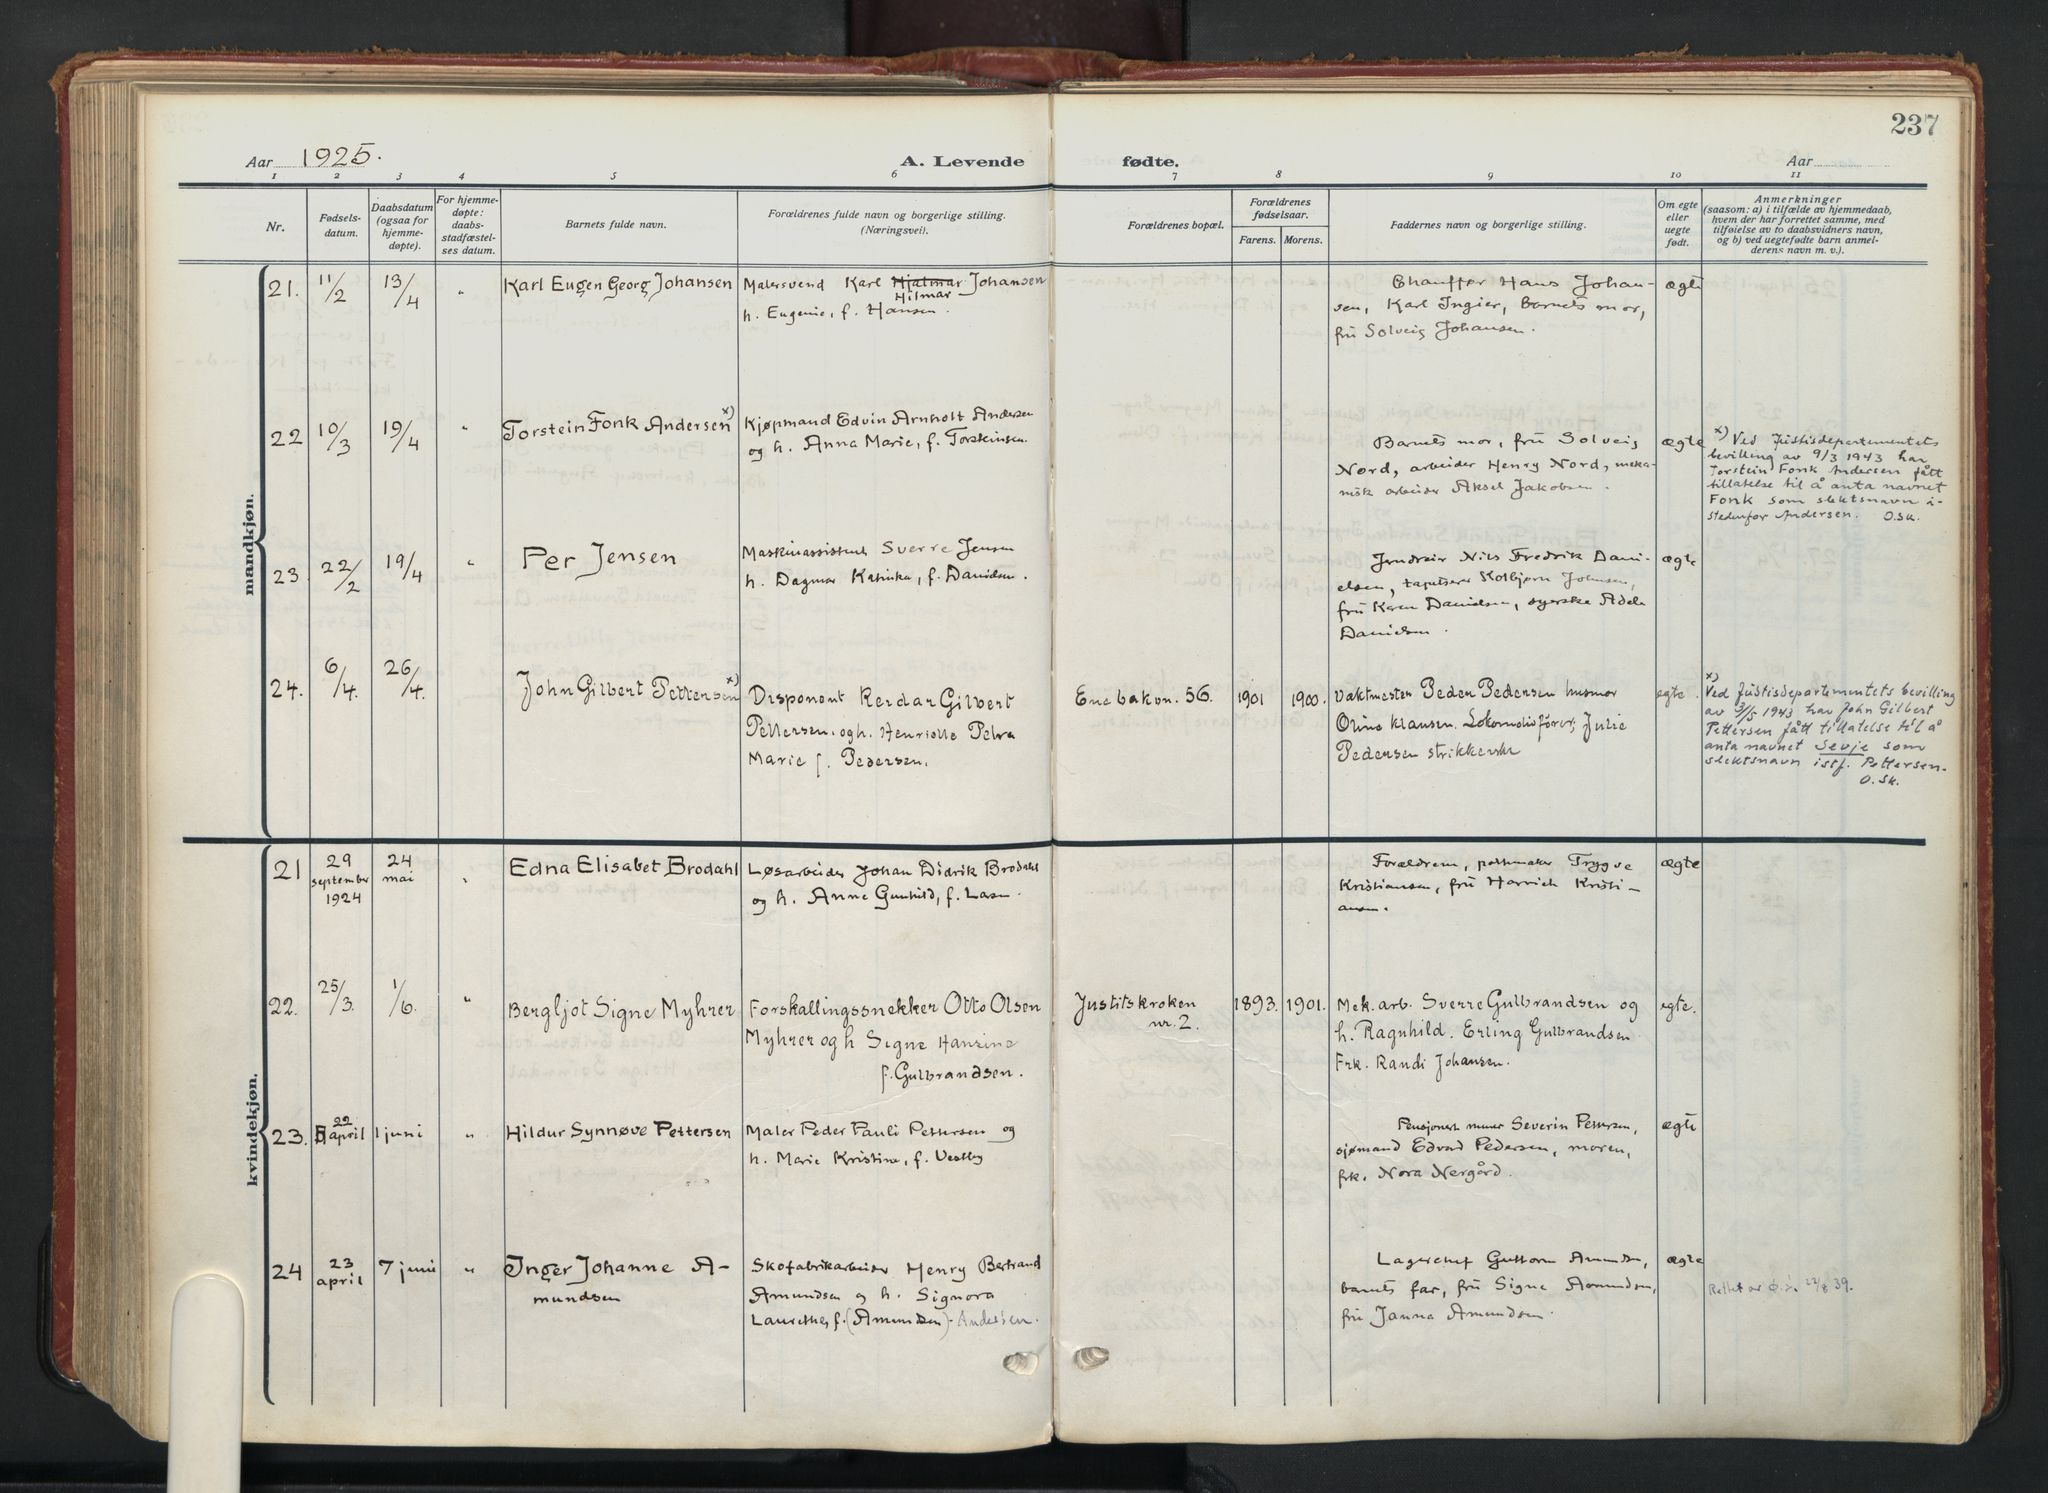 237
Aar 1925.
A. Levende
fødte.
Aar
1 2 3 4 5 6 7 8 9 10 11
Nr.
Fødsels-
datum.
Daabsdatum
(ogsaa for
hjemme-
døpte).
For hjemme-
døpte:
daabs-
stadfæstel-
ses datum.
Barnets fulde navn.
Forældrenes fulde navn og borgerlige stilling.
(Næringsvei).
Forældrenes bopæl.
Forældrenes
fødselsaar.
Farens. Morens.
Faddernes navn og borgerlige stilling.
Om egte
eller
uegte
født.
Anmerkninger
(saasom: a) i tilfælde av hjemmedaab,
hvem der har forrettet samme, med
tilføielse av to daabsvidners navn,
og b) ved uegtefødte barn anmel-
derens navn m. v.).
mandkjøn.
21. 11/2 13/4 "
Karl Eugen Georg Johansen
Malersvend Karl Hjalmar Johansen
Hilmar
h. Eugenie, f. Hansen.
Chauffør Hans Johan-
sen, Karl Ingier, barnets mor,
fru Solveig Johansen.
ægte
22 10/3 19/4 "
Torstein Fonk Andersen x)
Kjøpmand Edvin Arnholt Andersen
og h. Anna Marie, f. Torskinsen
Barnets mor, fru Solveig
Nord, arbeider Henry Nord, meka-
nisk arbeider Aksel Jakobsen.
ægte
x) Ved Justisdepartementets
bevilling av 9/3 1943 har
Torstein Fonk Andersen fått
tillatelse til å anta navnet
Fonk som slektsnavn i-
stedenfor Andersen. O.Sk.
23. 22/2 19/4 "
Per Jensen
Maskinassistent Sverre Jensen
h. Dagmar Katinka, f. Danielsen.
Nils Fredrik Dani-
elsen, tapetserer Kolbjørn Johnsen,
fru Karen Danielsen, syerske Adele
Danielsen.
ægte
24. 6/4. 26/4.
John Gilbert Pettersen x)
Disponent Reidar Gilbert
Pettersen. og h. Henriette Petra
Marie f. Pedersen.
Enebakvn. 56. 1901 1900.
Vaktmester Peder Pedersen husmor
Oline Klausen. Lokomotivfører, Julie
Pedersen strikkerske
egte.
x) Ved Justisdepartementets bevilling
av 3/5 1943 har John Gilbert
Pettersen fått tillatelse til å
anta navnet Sevje som
slektsnavn istf. Pettersen.
O. Sk.
kvindekjøn.
21 29 september 1924 24 mai "
Edna Elisabet Brodahl
Løsarbeider Johan Didrik Brodahl
og h. Anne Gunhild, f. Larsen.
Forældrene, Trygve
Kristiansen, fru Kristi-
ansen.
ægte
22. 25/3. 1/6. "
Bergljot Signe Myhrer
Forskallingssnekker Otto Olsen
Myhrer og h Signe Hansine
f. Gulbrandsen.
Justitskroken
nr. 2.
1893. 1901.
Mek. arb. Sverre Gulbrandsen og
h. Ragnhild. Erling Gulbrandsen
Frk. Randi Johansen.
egte.
23. 22 april 1 juni "
Hildur Synnøve Pettersen
Maler Peder Pauli Pettersen og
h. Marie Kristine, f. Vestby
Pensjonert murer Severin Pettersen,
sjømand Edvard Pedersen, moren,
frk. Nora Nergård.
ægte
24 23 april 7 juni "
Inger Johanne A-
mundsen
Skofabrikarbeider Henry Bertrand
Amundsen og h. Signora
Laurethe, f. (Amundsen). Andersen.
Lagerchef Guttorm Amundsen,
barnets far, fru Signe Amundsen,
fru Janna Amundsen.
ægte
Rettet av 22/8 39.